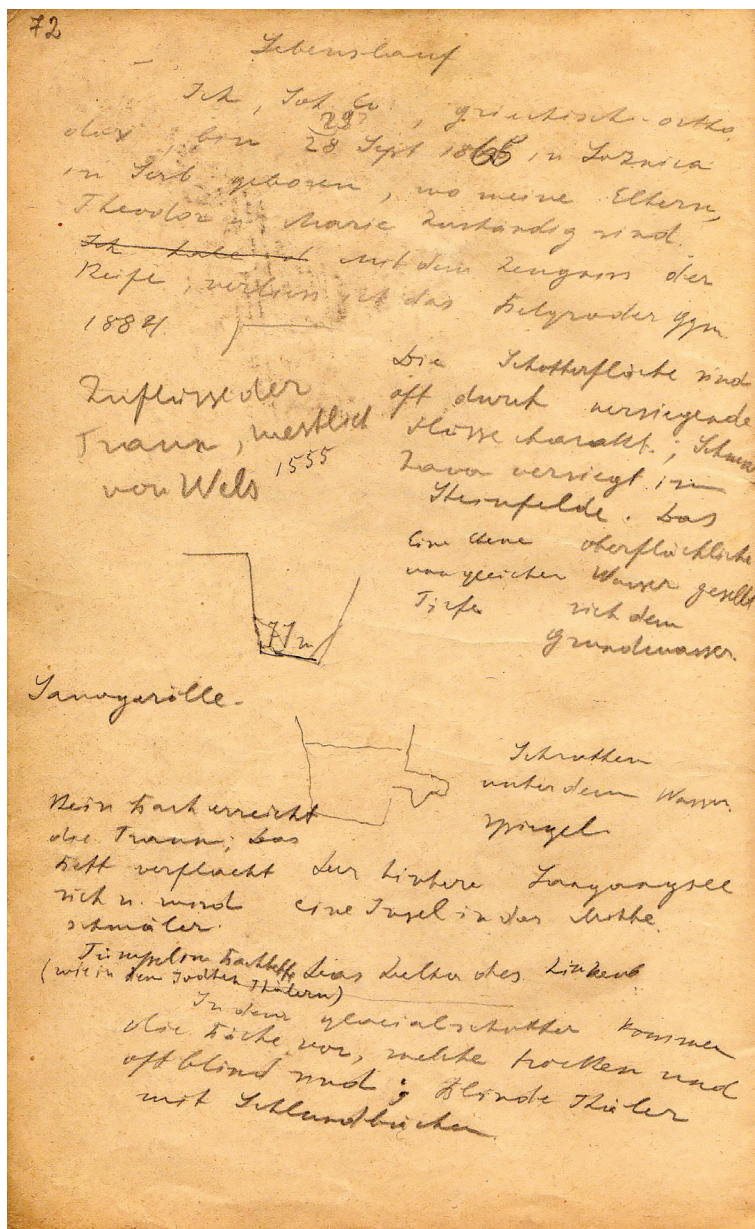 72
Lebenslauf
Ich, Joh. Cv., griechisch-ortho-
dox, bin 28 29? Sept 1865 in Ložnica
in Serb. geboren, wo meine Eltern,
Theodor u. Marie zuständig sind.
Ich habe mit dem Zeugniss der
Reife, verliess ich das Belgrader Gym
1884
Zuflüsse der
Traun, westlich
von Wels 1555
Die Schotterfläche sind
oft durch versiegende
Flüsse charakt.;
versiegt im
Steinfelde. Das
oberflächliche
Wasser gesellt
sich dem
Grundwasser.
Eine ebene
von gleicher
Tiefe
77 m
Schratten
unter dem Wasser
spiegel.
Kein Bach erreicht
die Traun; Das
Bett verflacht
sich u. wird
schmäler.
Der hintere
eine Insel in der Mitte.
Tümpel im Bachbette
(wie in den Todten Thälern)
Das Delta des
In dem glacialschotter kommen
die Bäche vor, welche trocken und
oft blind sind; Blinde Thäler
mit